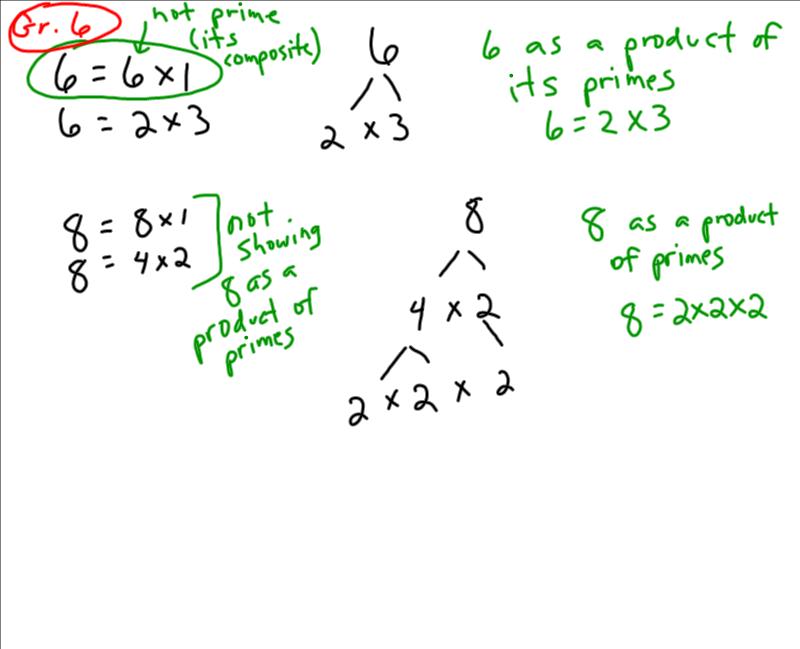 Gr. 6
not prime
(its
composite)
6 = 6 x 1
6 = 2 x 3
6
2 x 3
6 as a product of
its primes
6 = 2 x 3
8 = 8 x 1
8 = 4 x 2
not
showing
8 as a
product of
primes
8
4 x 2
2 x 2 x 2
8 as a product
of primes
8 = 2x2x2